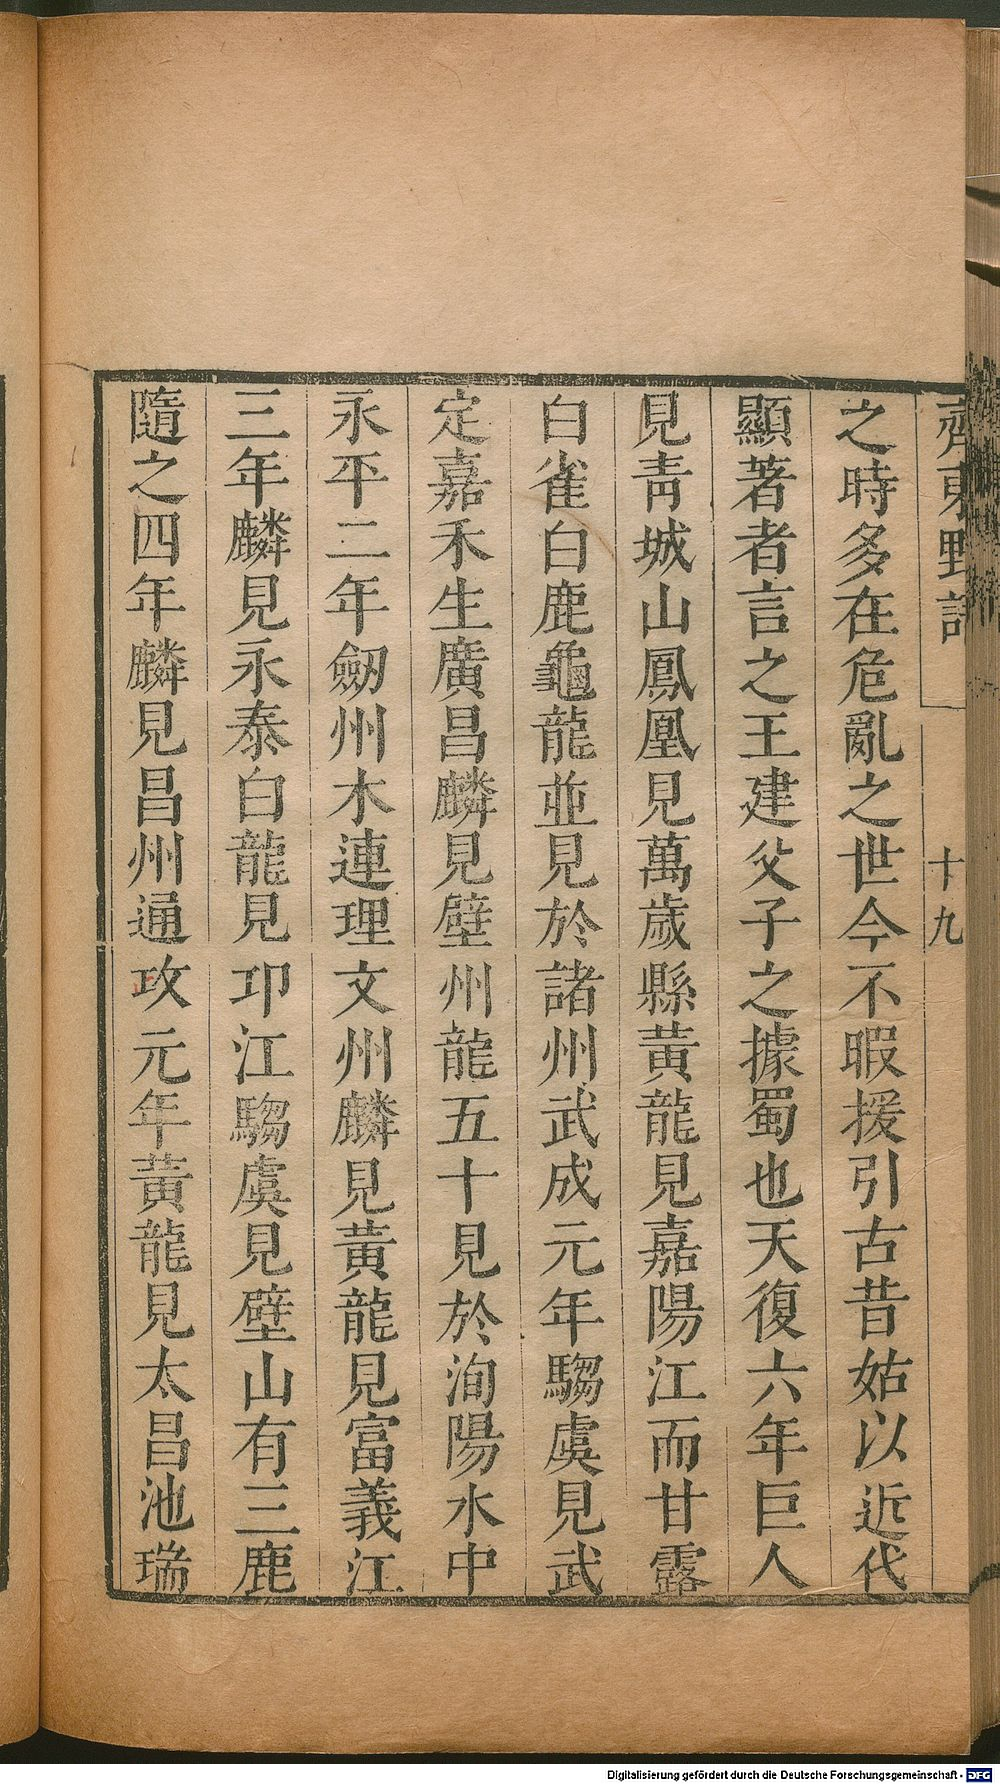 齊東野語
十九
之時多在危亂之世今不暇援引古昔姑以近代
顯著者言之王建父子之據蜀也天復六年巨人
見靑城山鳳凰見萬歲縣黃龍見嘉陽江而甘露
白雀白鹿龜龍並見於諸州武成元年騶虞見武
定嘉禾生廣昌麟見壁州龍五十見於洵陽水中
永平二年劒州木連理文州麟見黃龍見富義江
三年麟見永泰白龍見邛江騶虞見壁山有三鹿
隨之四年麟見昌州通攻元年黃龍見太昌池瑞
Digitalisierung gefördert durch die Deutsche Forschungsgemeinschaft - DFG